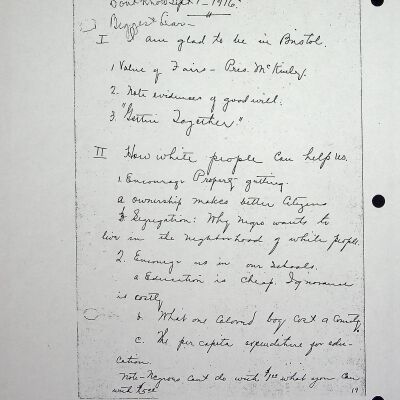 Don't Know Sept 1 - 1916.
Biggest Liar -
I I am glad to be in Bristol.
1 Value of Fairs - Pres. McKinley.
2. Note evidences of good will.
3. "Gettin Together."
II How white people can help us.
1. Encourage Property getting.
a ownership makes better Citizens
b Segregation: Why Negro wants to
live in the neighborhood of white people.
2. Encourage us in our schools.
a Education is cheap. Ignorance
is costly
b. What one Colored boy cost a County.
c. The per capita expenditure for edu-
cation.
Note - Negroes can't do with $1.00 what you can
with
19